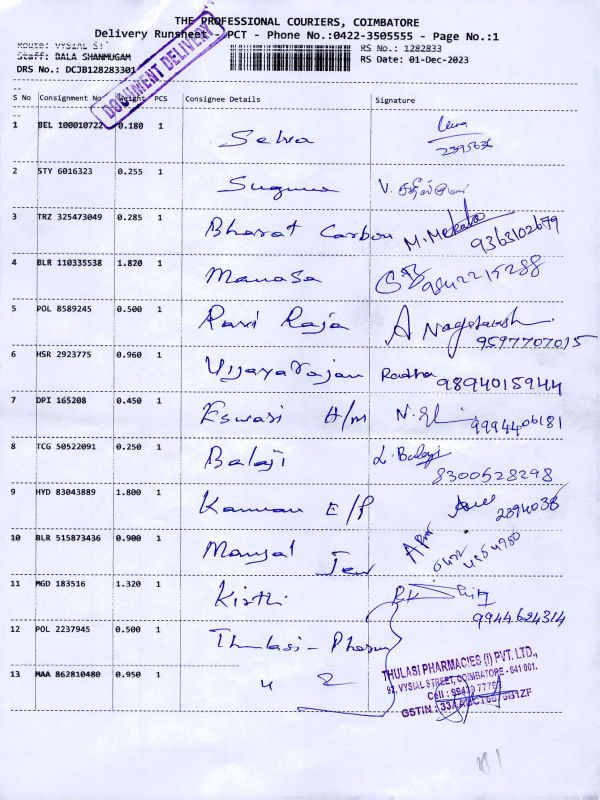 THE PROFESSIONAL COURIERS, COIMBATORE
Delivery Runsheet - PCT - Phone No.:0422-3505555 - Page No.:1
Route: VYSIAL ST
Staff: BALA SHANMUGAM
DRS No.: DCJB128283301
RS No.: 1282833
RS Date: 01-Dec-2023
DOCUMENT DELIVERY
S No Consignment No Weight PCS Consignee Details Signature
1 BEL 100010722 0.180 1 Selva
2395636
2 STY 6016323 0.255 1 Suguna V.
3 TRZ 325473049 0.285 1 Bharat Carbon M.
9363102679
4 BLR 110335538 1.820 1 Manasa 9842215288
5 POL 8589245 0.500 1 Ravi Raja A
9597707015
6 HSR 2923775 0.960 1 Vijayarajan Radha 9894015944
7 DPI 165208 0.450 1 Eswari H/m N. 9994406181
8 TCG 50522091 0.250 1 Balaji L. Balaji
8300528298
9 HYD 83043889 1.800 1 Kannan E/P
2394038
10 BLR 515873436 0.900 1 Mangal Jew
11 MGD 183516 1.320 1 Kirthi
9944624314
12 POL 2237945 0.500 1 Thulasi - Pharm
13 MAA 862810480 0.950 1 " 2
THULASI PHARMACIES (I) PVT. LTD.,
VYSIAL STREET, COIMBATORE - 641 001.
Cell :
GSTIN :